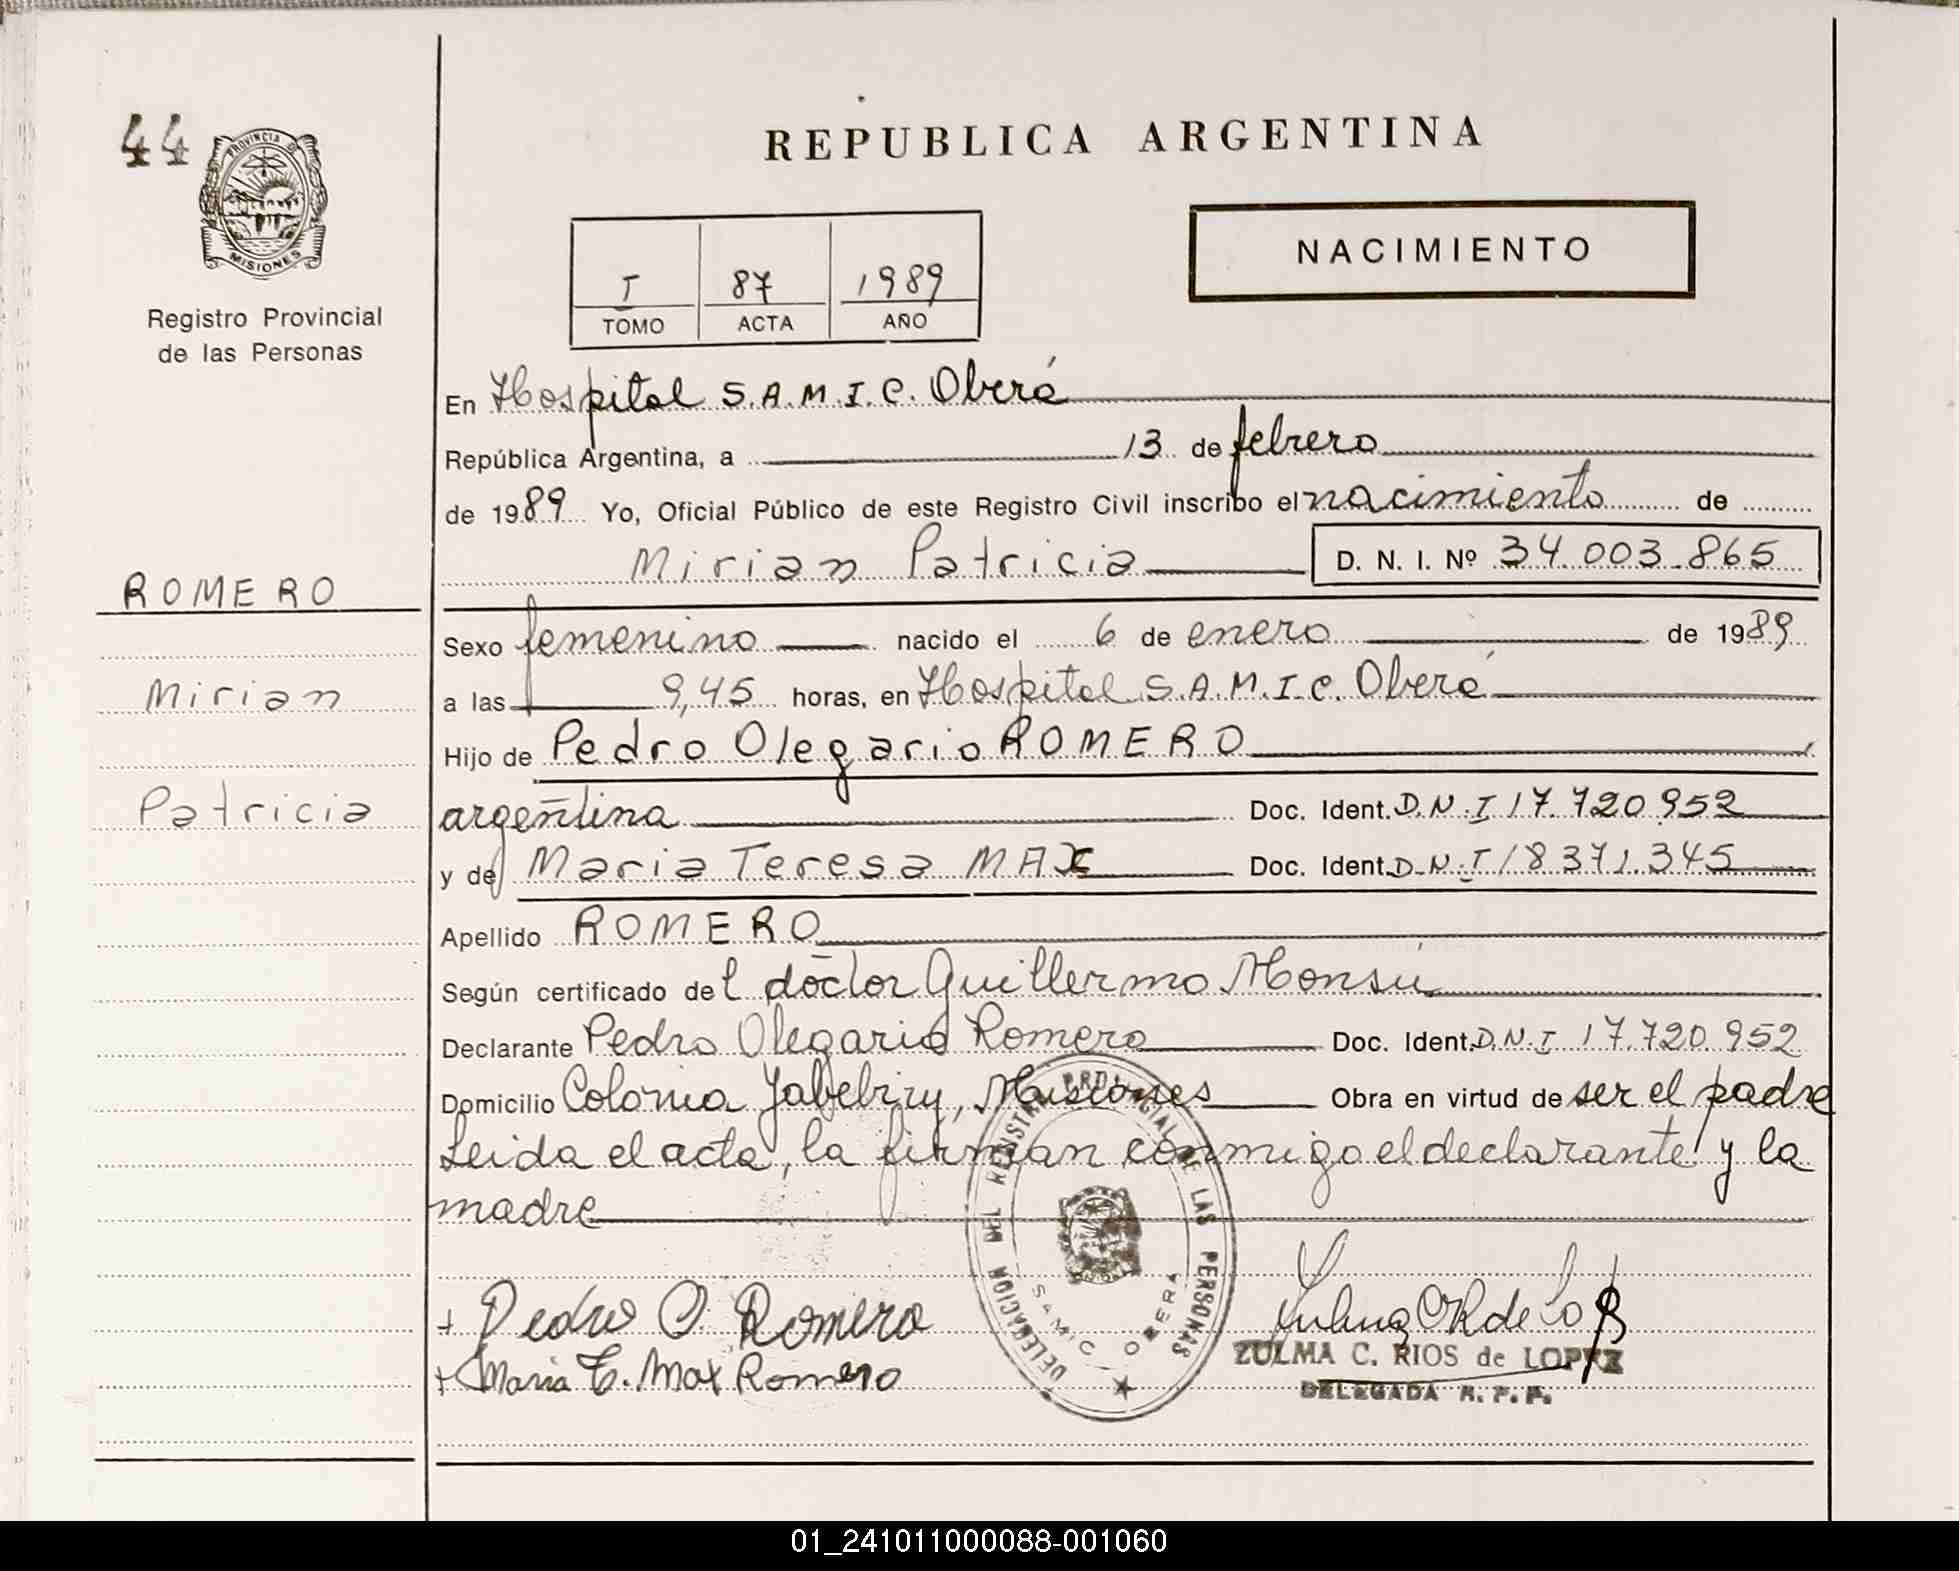 44
PROVINCIA D
MISIONES
Registro Provincial
de las Personas
REPUBLICA ARGENTINA
NACIMIENTO
I 87 1989
TOMO ACTA AÑO
En Hospital S.A.M.I.C. Oberá
República Argentina, a 13 de febrero
de 1989 Yo, Oficial Público de este Registro Civil inscribo el nacimiento de
Mirian Patricia D. N. I. Nº 34.003.865
ROMERO
Mirian
Patricia
Sexo femenino nacido el 6 de enero de 1989
a las 9,45 horas, en Hospital S.A.M.I.C. Oberá
Hijo de Pedro Olegario ROMERO
argentina Doc. Ident. D.N.I 17.720.952
y de Maria Teresa MAX Doc. Ident. D.N.I 18.371.345
Apellido ROMERO
Según certificado del doctor Guillermo Monsú
Declarante Pedro Olegario Romero Doc. Ident. D.N.I 17.720.952
Domicilio Colonia Yabebiry, Misiones Obra en virtud de ser el padre
Leida el acta, la firman conmigo el declarante y la
madre
DELEGACION DEL REGISTRO PROVINCIAL DE LAS PERSONAS
SAMIC OBERA
+ Pedro O. Romero
+ Maria T. Max Romero
ZULMA C. RIOS de LOPEZ
DELEGADA R. P. P.
01_241011000088-001060